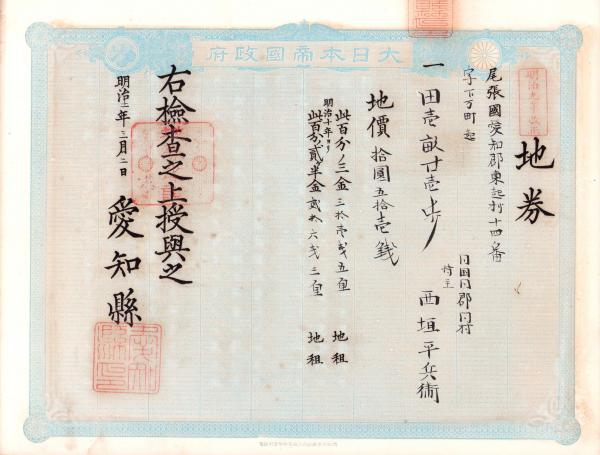 大日本帝國政府
明治九年改正
地券
尾張國愛知郡東起村十四番
字下万町起
一田壱畝廿壱歩
同国同郡同村
持主 西垣平兵衛
地價 拾圓五拾壱銭
此百分ノ三金三拾壱銭五厘 地租
明治十年ヨリ
此百分ノ貳半金貳拾六銭三厘 地租
右檢査之上授與之
明治十二年三月二日
愛知縣